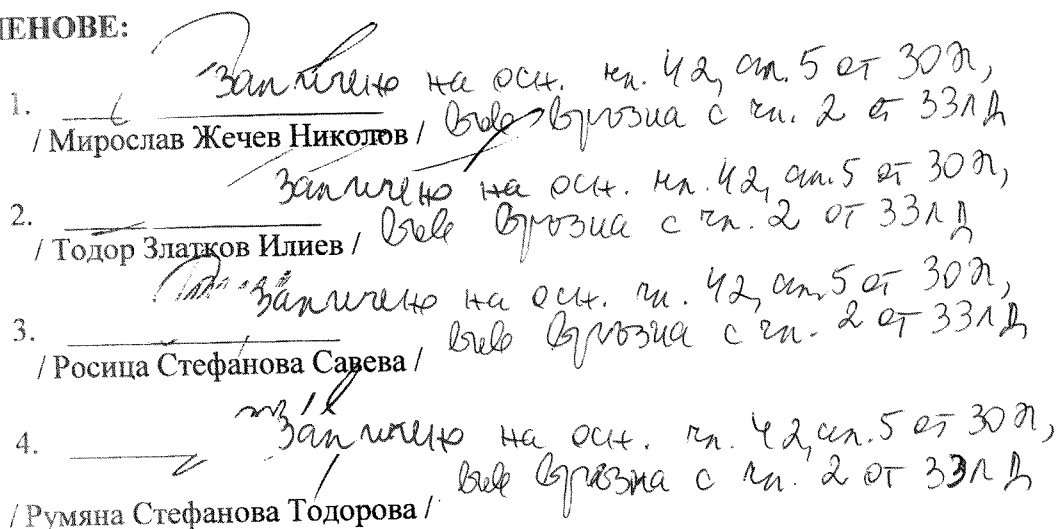 ЧЛЕНОВЕ:
Заличено на осн. чл. 42, ал. 5 от ЗОП,
1.
във връзка с чл. 2 от ЗЗЛД
/ Мирослав Жечев Николов /
Заличено на осн. чл. 42, ал. 5 от ЗОП,
2.
във връзка с чл. 2 от ЗЗЛД
/ Тодор Златков Илиев /
Заличено на осн. чл. 42, ал. 5 от ЗОП,
3.
във връзка с чл. 2 от ЗЗЛД
/ Росица Стефанова Савева /
Заличено на осн. чл. 42, ал. 5 от ЗОП,
4.
във връзка с чл. 2 от ЗЗЛД
/ Румяна Стефанова Тодорова /